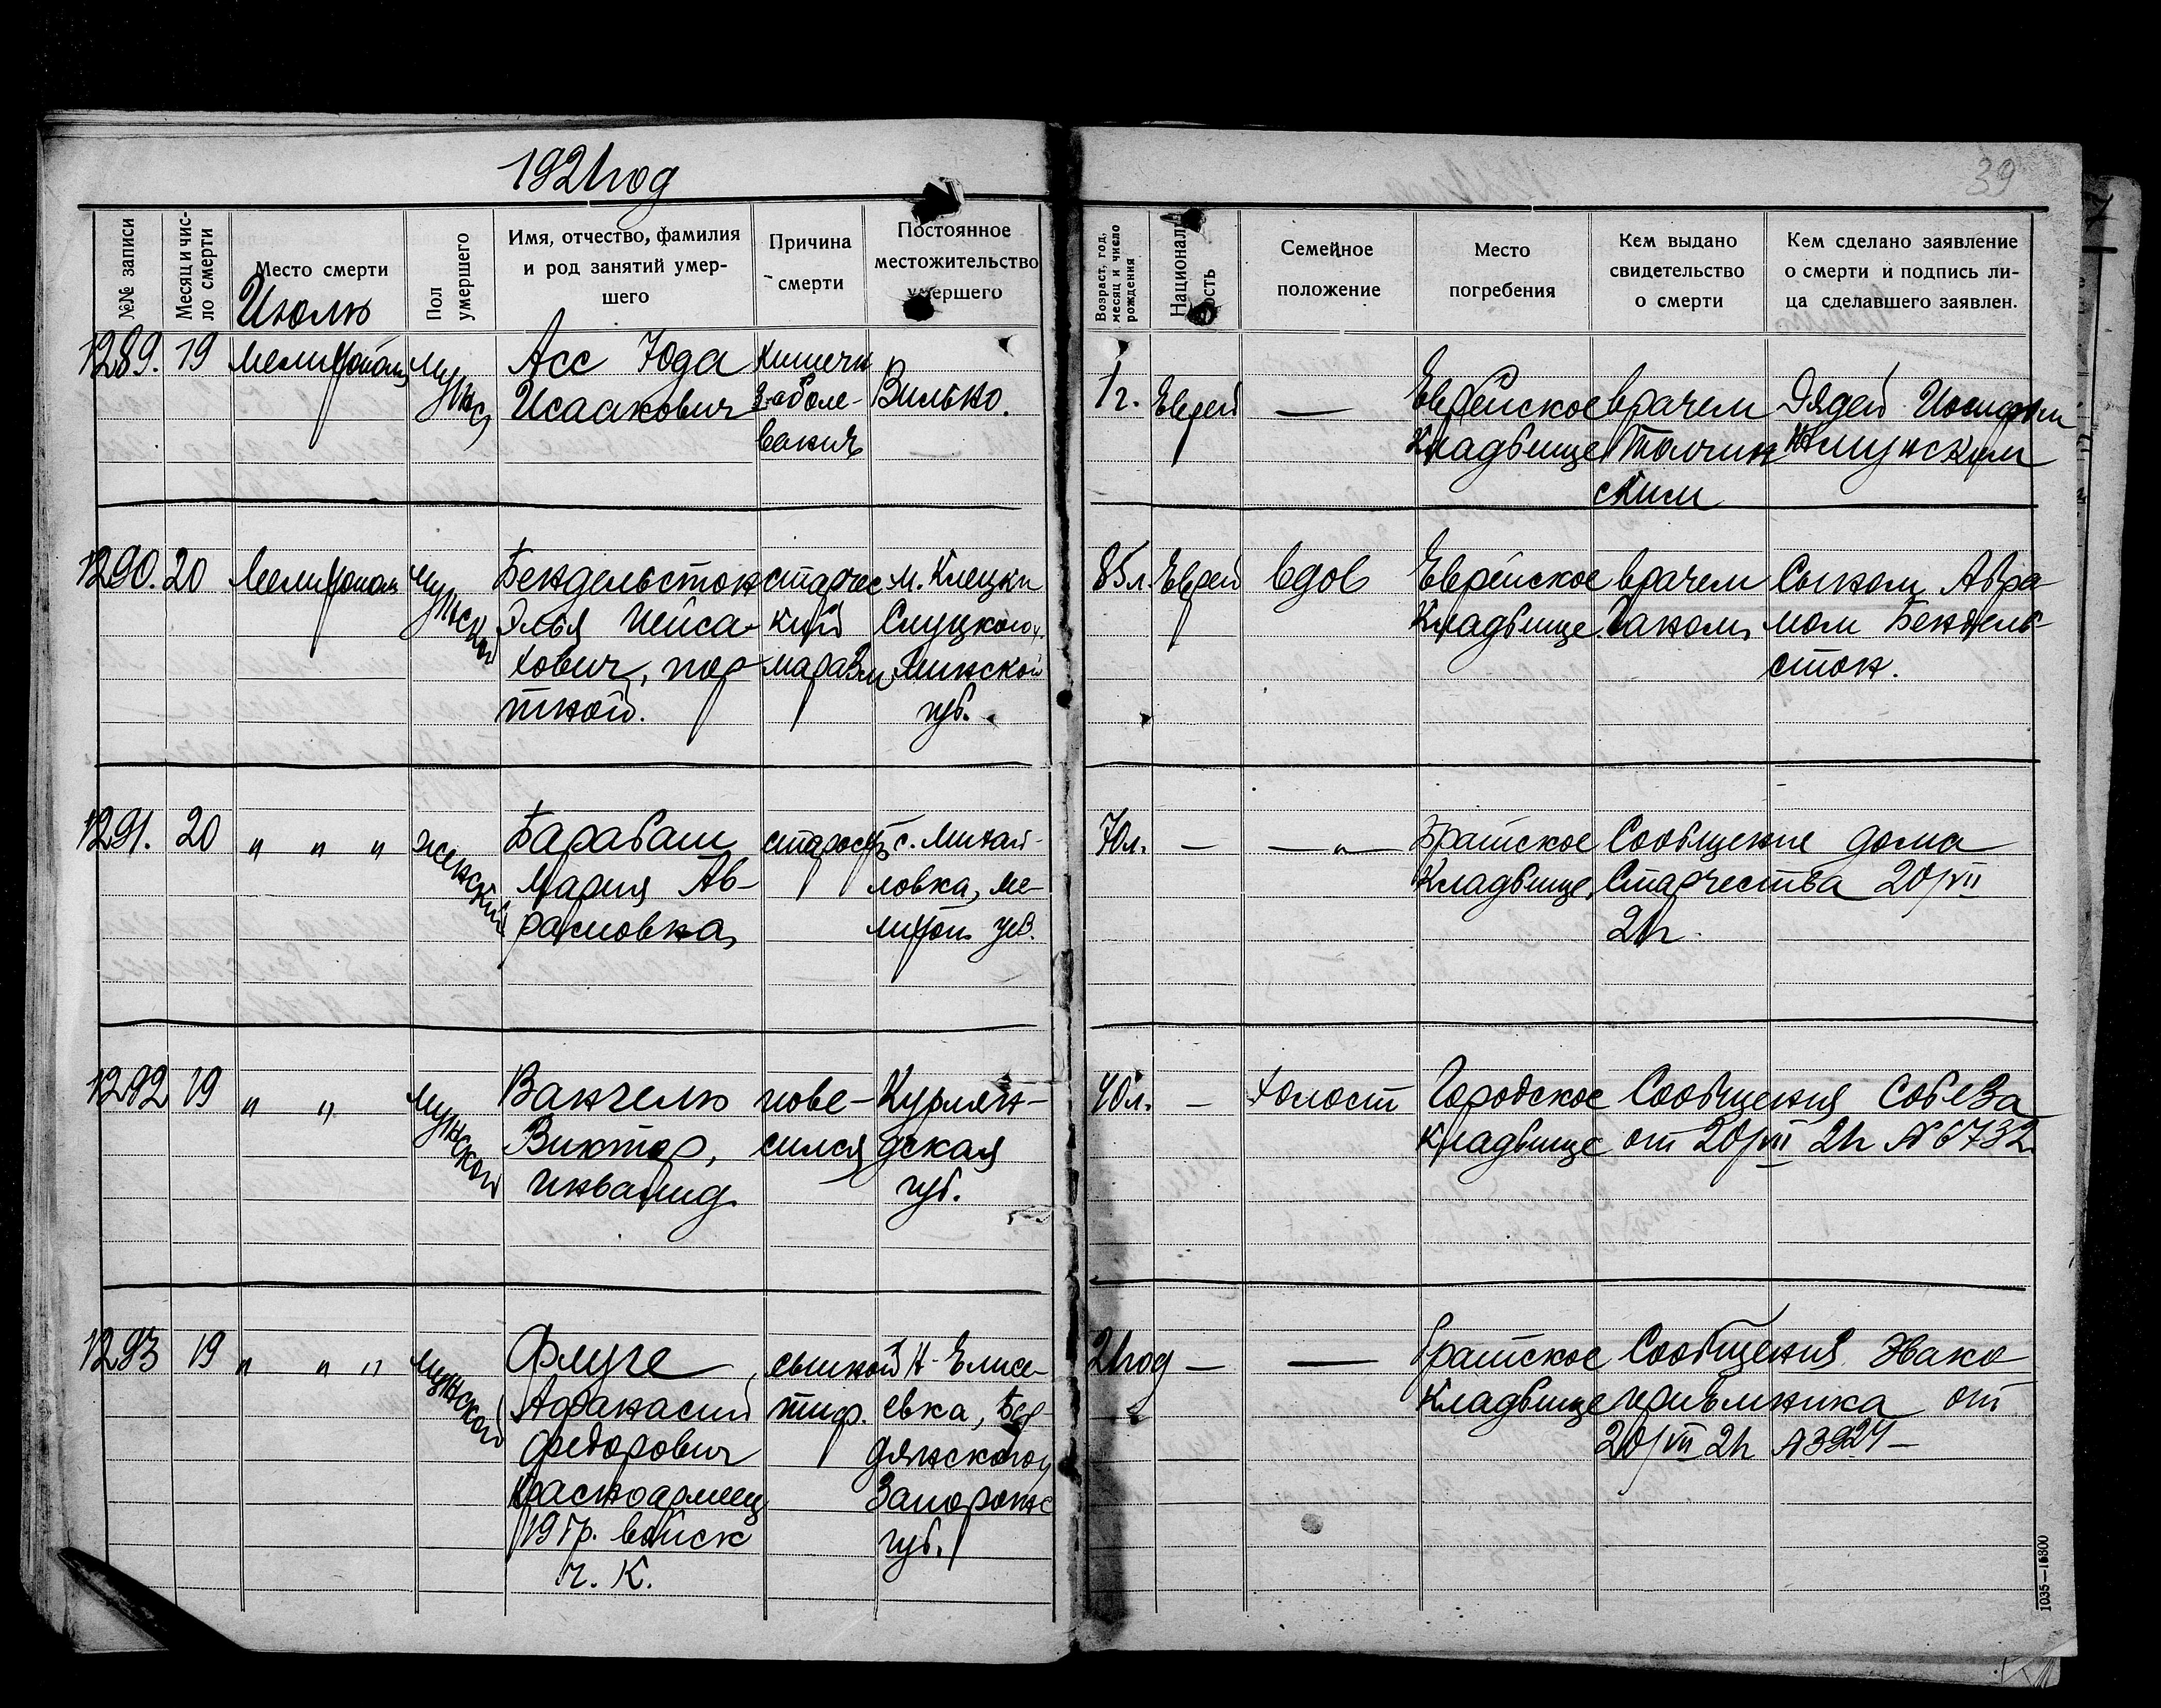 1921 год
39
№№ записи
Месяц и чис-
ло смерти
Место смерти
Июль
Пол
умершего
Имя, отчество, фамилия
и род занятий умер-
шего
Причина
смерти
Постоянное
местожительство
умершего
Возраст, год,
месяц и число
рождения
Национальность
Семейное
положение
Место
погребения
Кем выдано
свидетельство
о смерти
Кем сделано заявление
о смерти и подпись ли-
ца сделавшего заявлен.
1289. 19 Мелитополь мужс
Асс Юда
Исаакович
кишечн
заболе-
вание
Вильно.
1 г. Еврей —
Еврейское
кладбище
врачем
Толчин
ским
Дядей Иосифом
1290. 20 Мелитополь мужской
Бендельстон
Элья
хович, пор-
тной.
старчес
кий
маразм
м. Клецки
Слуцкого у.
Минской
губ.
85 л. Еврей вдов
Еврейское
кладбище
врачем
Сыном Авра-
мом Бендель-
стон.
1291. 20 " " " женский
Барабаш
Мария Ав-
рамовна
старость
с. Михай-
ловка, Ме-
литоп. уез.
70 л. — —"—
Братское
кладбище
Сообщение дома
Старчества 20/VII
21 г.
1292 19 " " мужской
Вангелю
Виктор,
инвалид
пове-
сился
Курлян-
дская
губ.
40 л. — холост
Городское
кладбище
Сообщения Собеза
от 20/VII 21 г №6732
1293 19 " " " мужской
Флуге
Афанасий
Федорович
Красноармеец
19 гр. войск
ч. К.
сыпной
тиф.
Н-Елисе-
евка, Бер-
дянского у
Запорожс
губ.
21 год — —
Братское
кладбище
Сообщения Эвако
приемника от
20/VII 21 г №3924 —
1035—15800